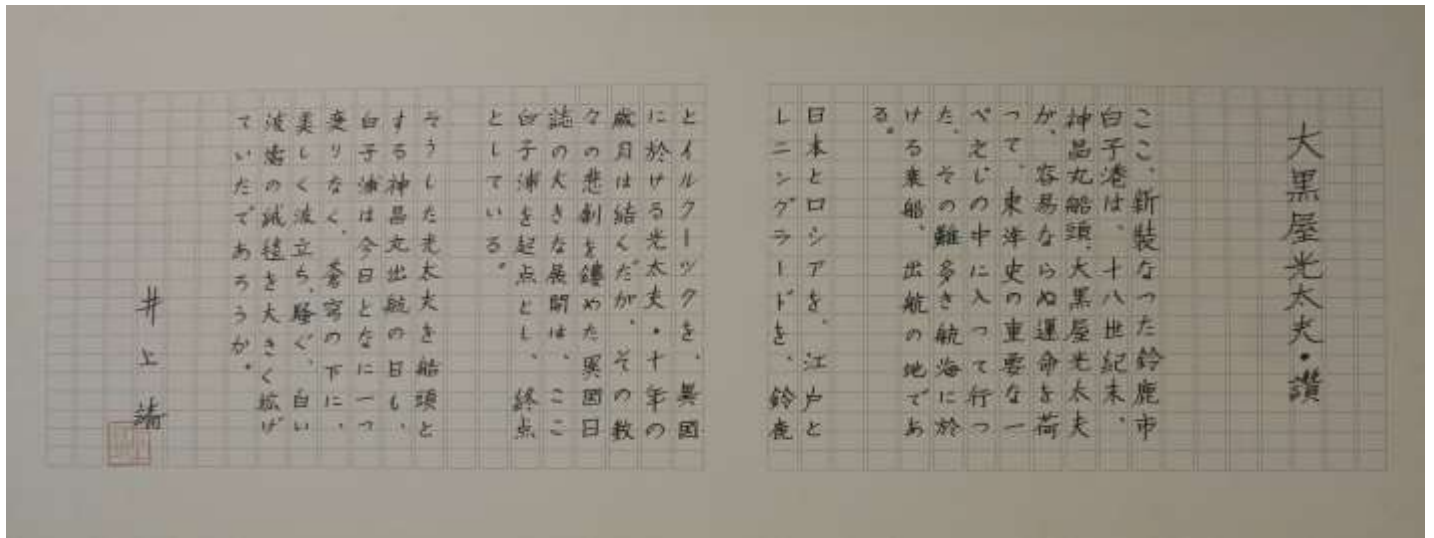 大黒屋光太夫・讃
ここ、新装なった鈴鹿市
白子港は、十八世紀末、
神昌丸船頭、大黒屋光太夫
が、容易ならぬ運命を荷
って、東洋史の重要な一
ぺえじの中に入って行っ
た、その難多き航海に於
ける乗船、出航の地であ
る。
日本とロシアを、江戸と
レニングラードを、鈴鹿
とイルクーツクを、異国
に於ける光太夫・十年の
歳月は結くだが、その数
々の悲劇を鏤めた異国日
誌の大きな展開は、ここ
白子浦を起点とし、終点
としている。
そうした光太夫を船頭と
する神昌丸出航の日も、
白子浦は今日となに一つ
変りなく、蒼穹の下に、
美しく波立ち、騒ぐ、白い
波濤の絨毯を大きく拡げ
ていたであろうか。
井上靖